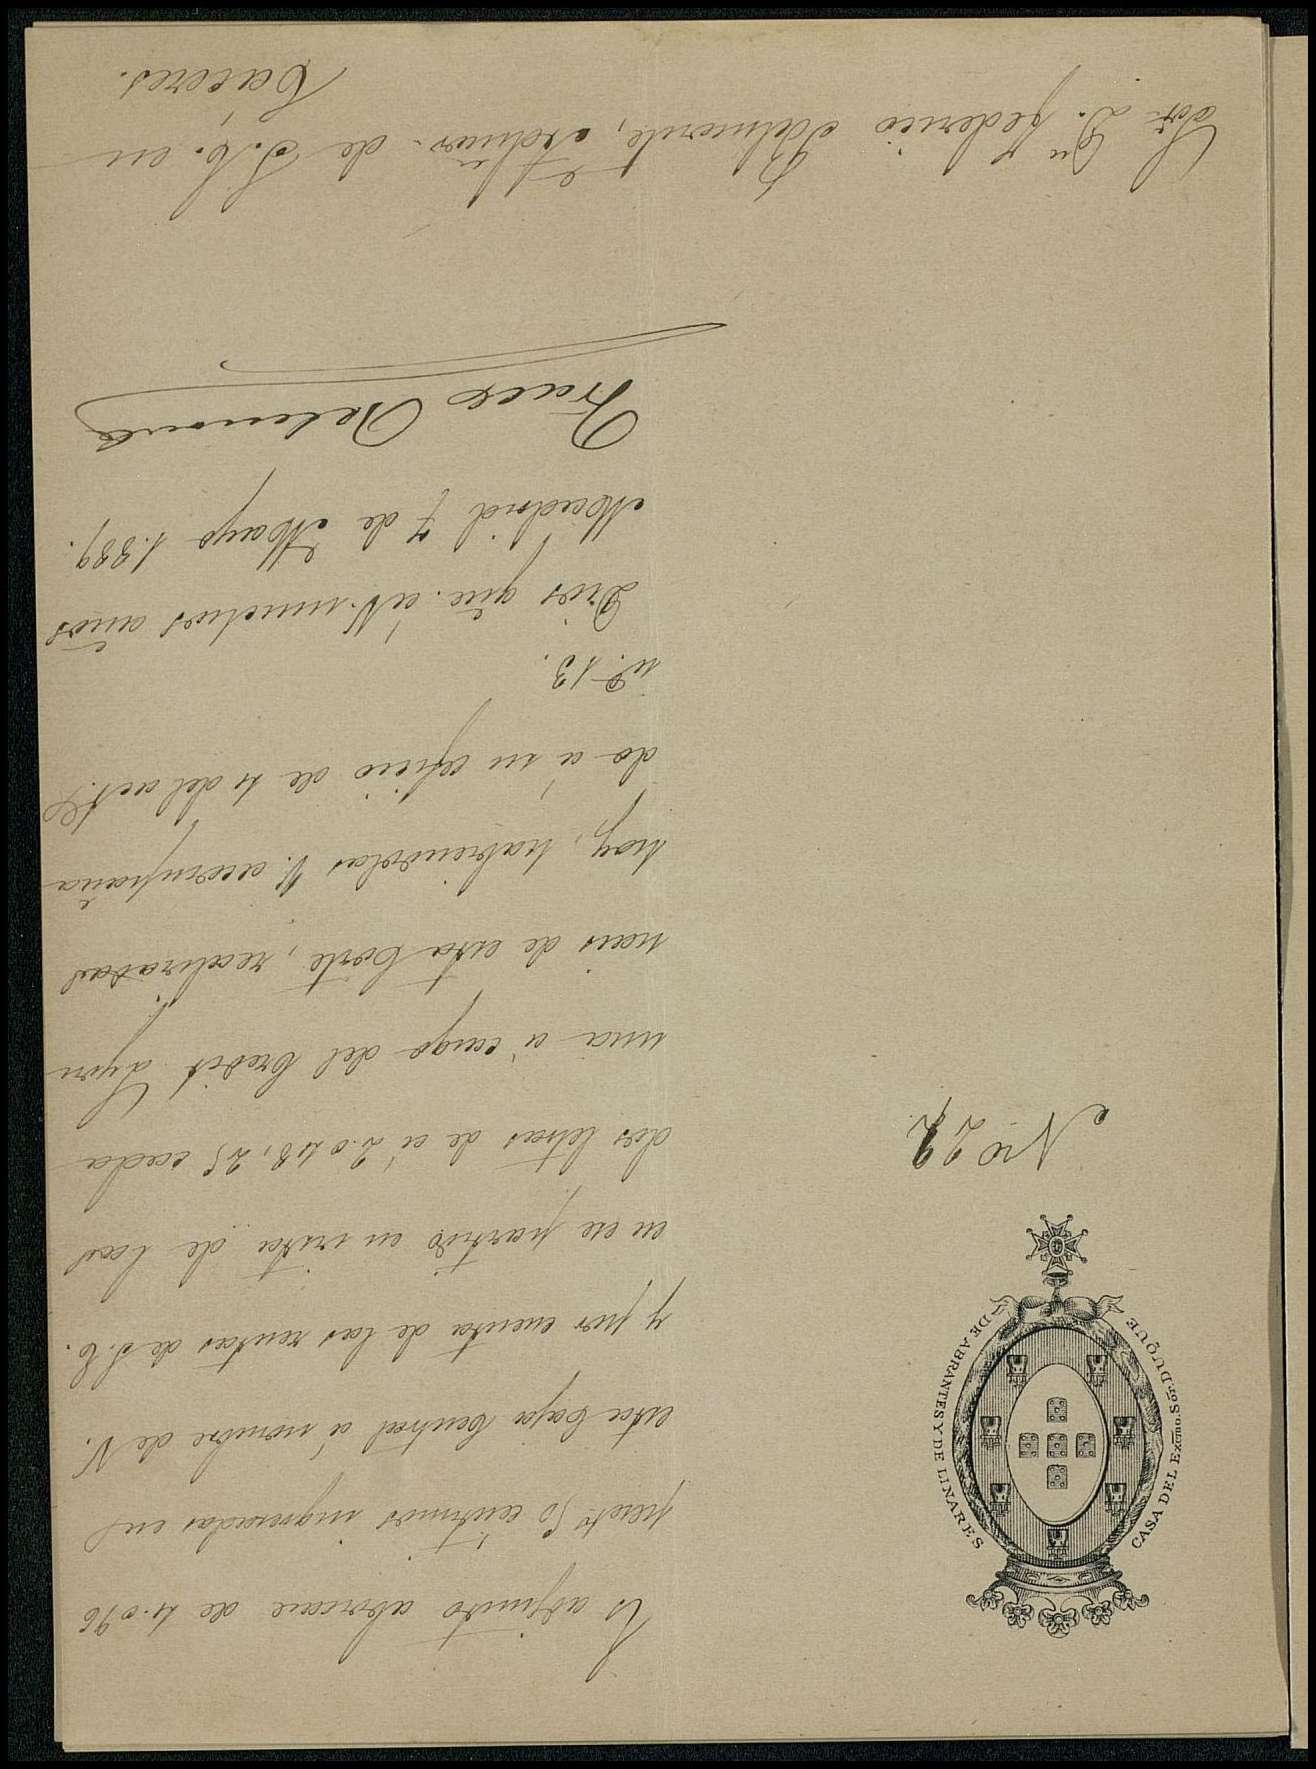 CASA DEL Excmo. Sor. DUQUE
DE ABRANTES Y DE LINARES
No 22
Es adjunto abonaré de 4.096
pesets 50 céntimos ingresadas en
esta Caja Central á nombre de V.
y por cuenta de las rentas de S.E.
en ese partido en vista de las
dos letras de á 2.048,25 cada
una á cargo del Credit Lyon
nais de esta Corte, realizadas
hoy, habiendolas V. acompaña
do á su oficio de 4 del act.l
n.º 13.
Dios gũe. á V. muchos años
Madrid 7 de Mayo 1.889.
Sor. D.n Federico Belmonte, Admor. de S.E. en
Cáceres.